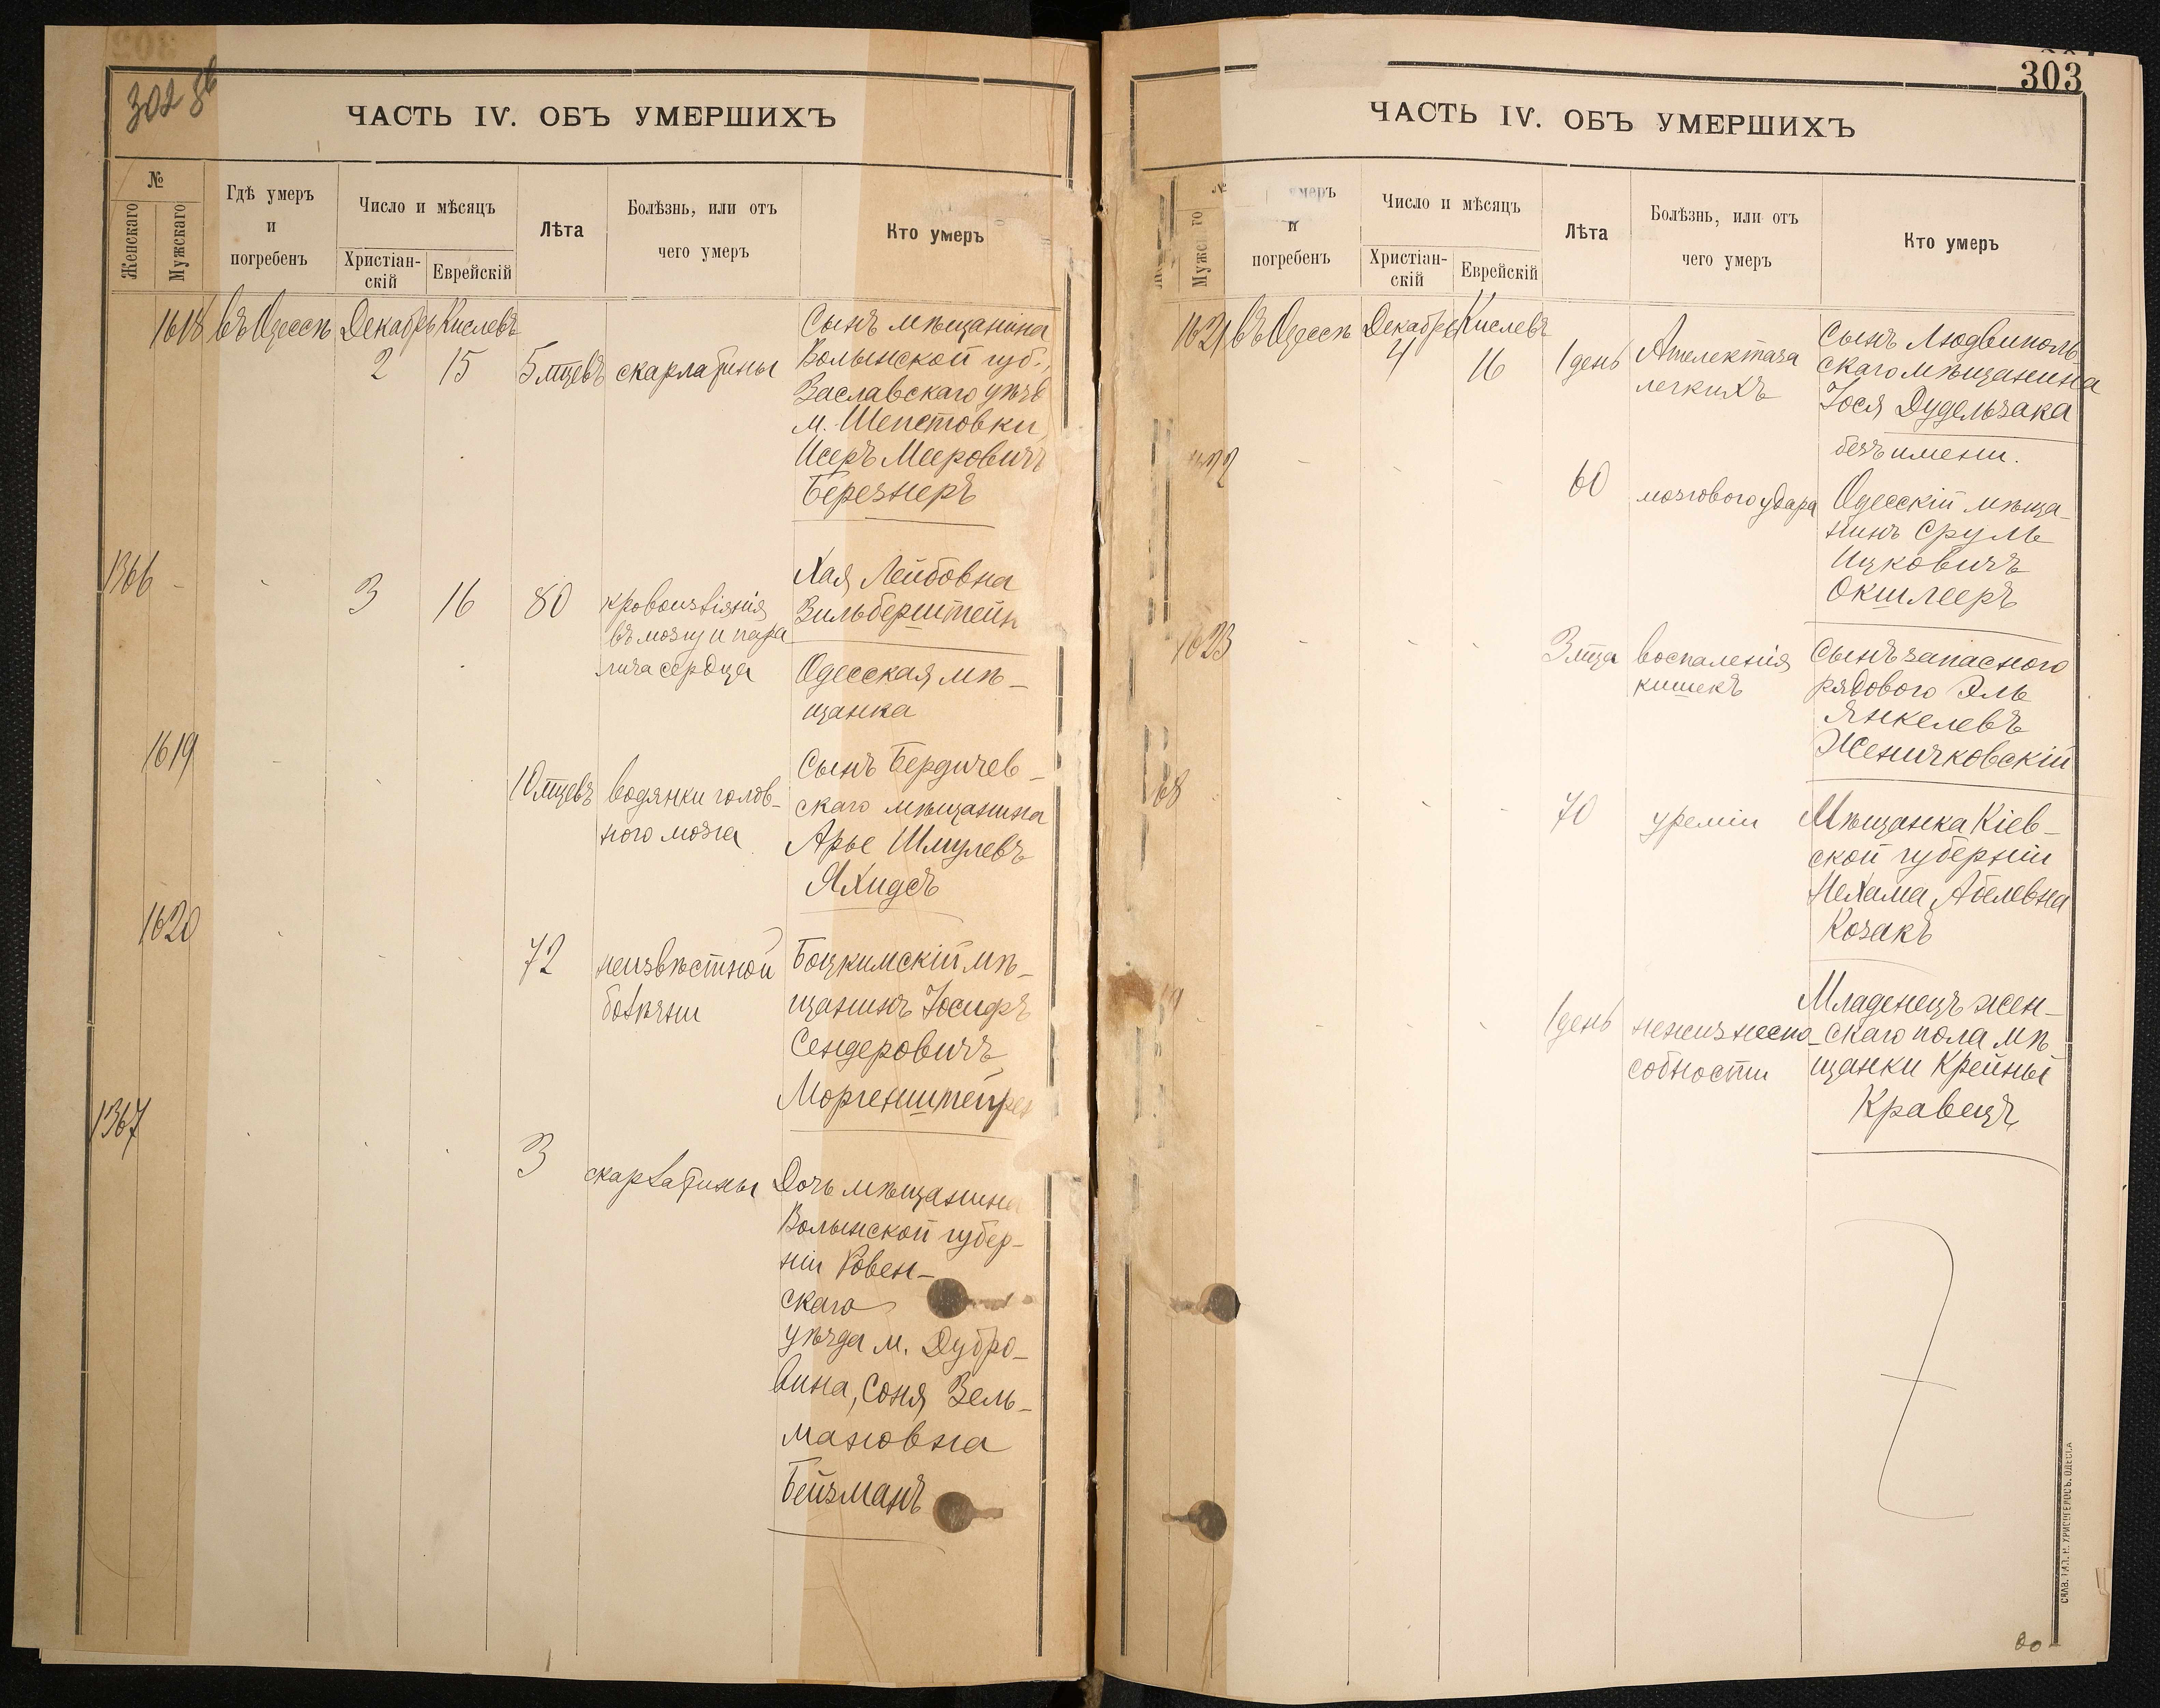 302 об
ЧАСТЬ IV. ОБЪ УМЕРШИХЪ
№
Женскаго
Мужскаго
Гдѣ умеръ
и
погребенъ
Число и мѣсяцъ
Христіан-
скій
Еврейскій
Лѣта
Болѣзнь, или отъ
чего умеръ
Кто умеръ
1618 въ Одессѣ Декабрь Кислевъ
2 15 5 мцевъ скарлатины
Сынъ мѣщанина
Волынской губ.,
Заславскаго уѣзв
м. Шепетовки,
Исеръ Мееровичъ
Березнеръ
1366 3 16 80
кровоизліянія
въ мозгу и пара
лича сердца
Хая Лейбовна
Зильберштейн
Одесская мѣ-
щанка
1619
10 мцевъ водянки голов-
ного мозга
Сынъ Бердичев-
скаго мѣщанина
Арье Шмулевъ
Яхидсъ
1620
72 неизвѣстной
болѣзни
Боцкимскій мѣ-
щанинъ Іосифъ
Сендеровичъ
1367
3 скарлатины
Дочь мѣщанина
Волынской губер-
ніи Ровен-
скаго
уѣзда м. Дубро-
вина, Соня Зель-
мановна
Бейзманъ
303
ЧАСТЬ IV. ОБЪ УМЕРШИХЪ
№
умеръ
и
погребенъ
Число и мѣсяцъ
Христіан-
скій
Еврейскій
Лѣта
Болѣзнь, или отъ
чего умеръ
Кто умеръ
1621 въ Одессѣ Декабрь Кислевъ
4 16 1 день
Ателектаза
легкихъ
Сынъ Людвиполь-
скаго мѣщанина
Іося Дудельзака
безъ имени.
60 мозгового удара
Одесскій мѣща-
нинъ Сруль
Ицковичъ
Окшлееръ
1623
3 мца воспаленія
кишекъ
Сынъ запасного
рядового Эль
Янкелевъ
Женичковскій
68
70 уреміи
Мѣщанка Кіев-
ской губерніи
Нехама Абелевна
Козакъ
1 день нежизнеспо-
собности
Младенецъ жен-
скаго пола мѣ
щанки Крейны
Кравецъ